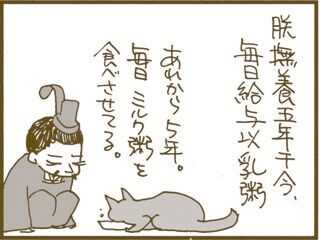 朕撫養五年于今、
毎日給与以乳粥
あれから5年。
毎日ミルク粥を
食べさせてる。